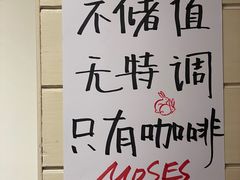 不储值
无特调
只有咖啡
MOSES